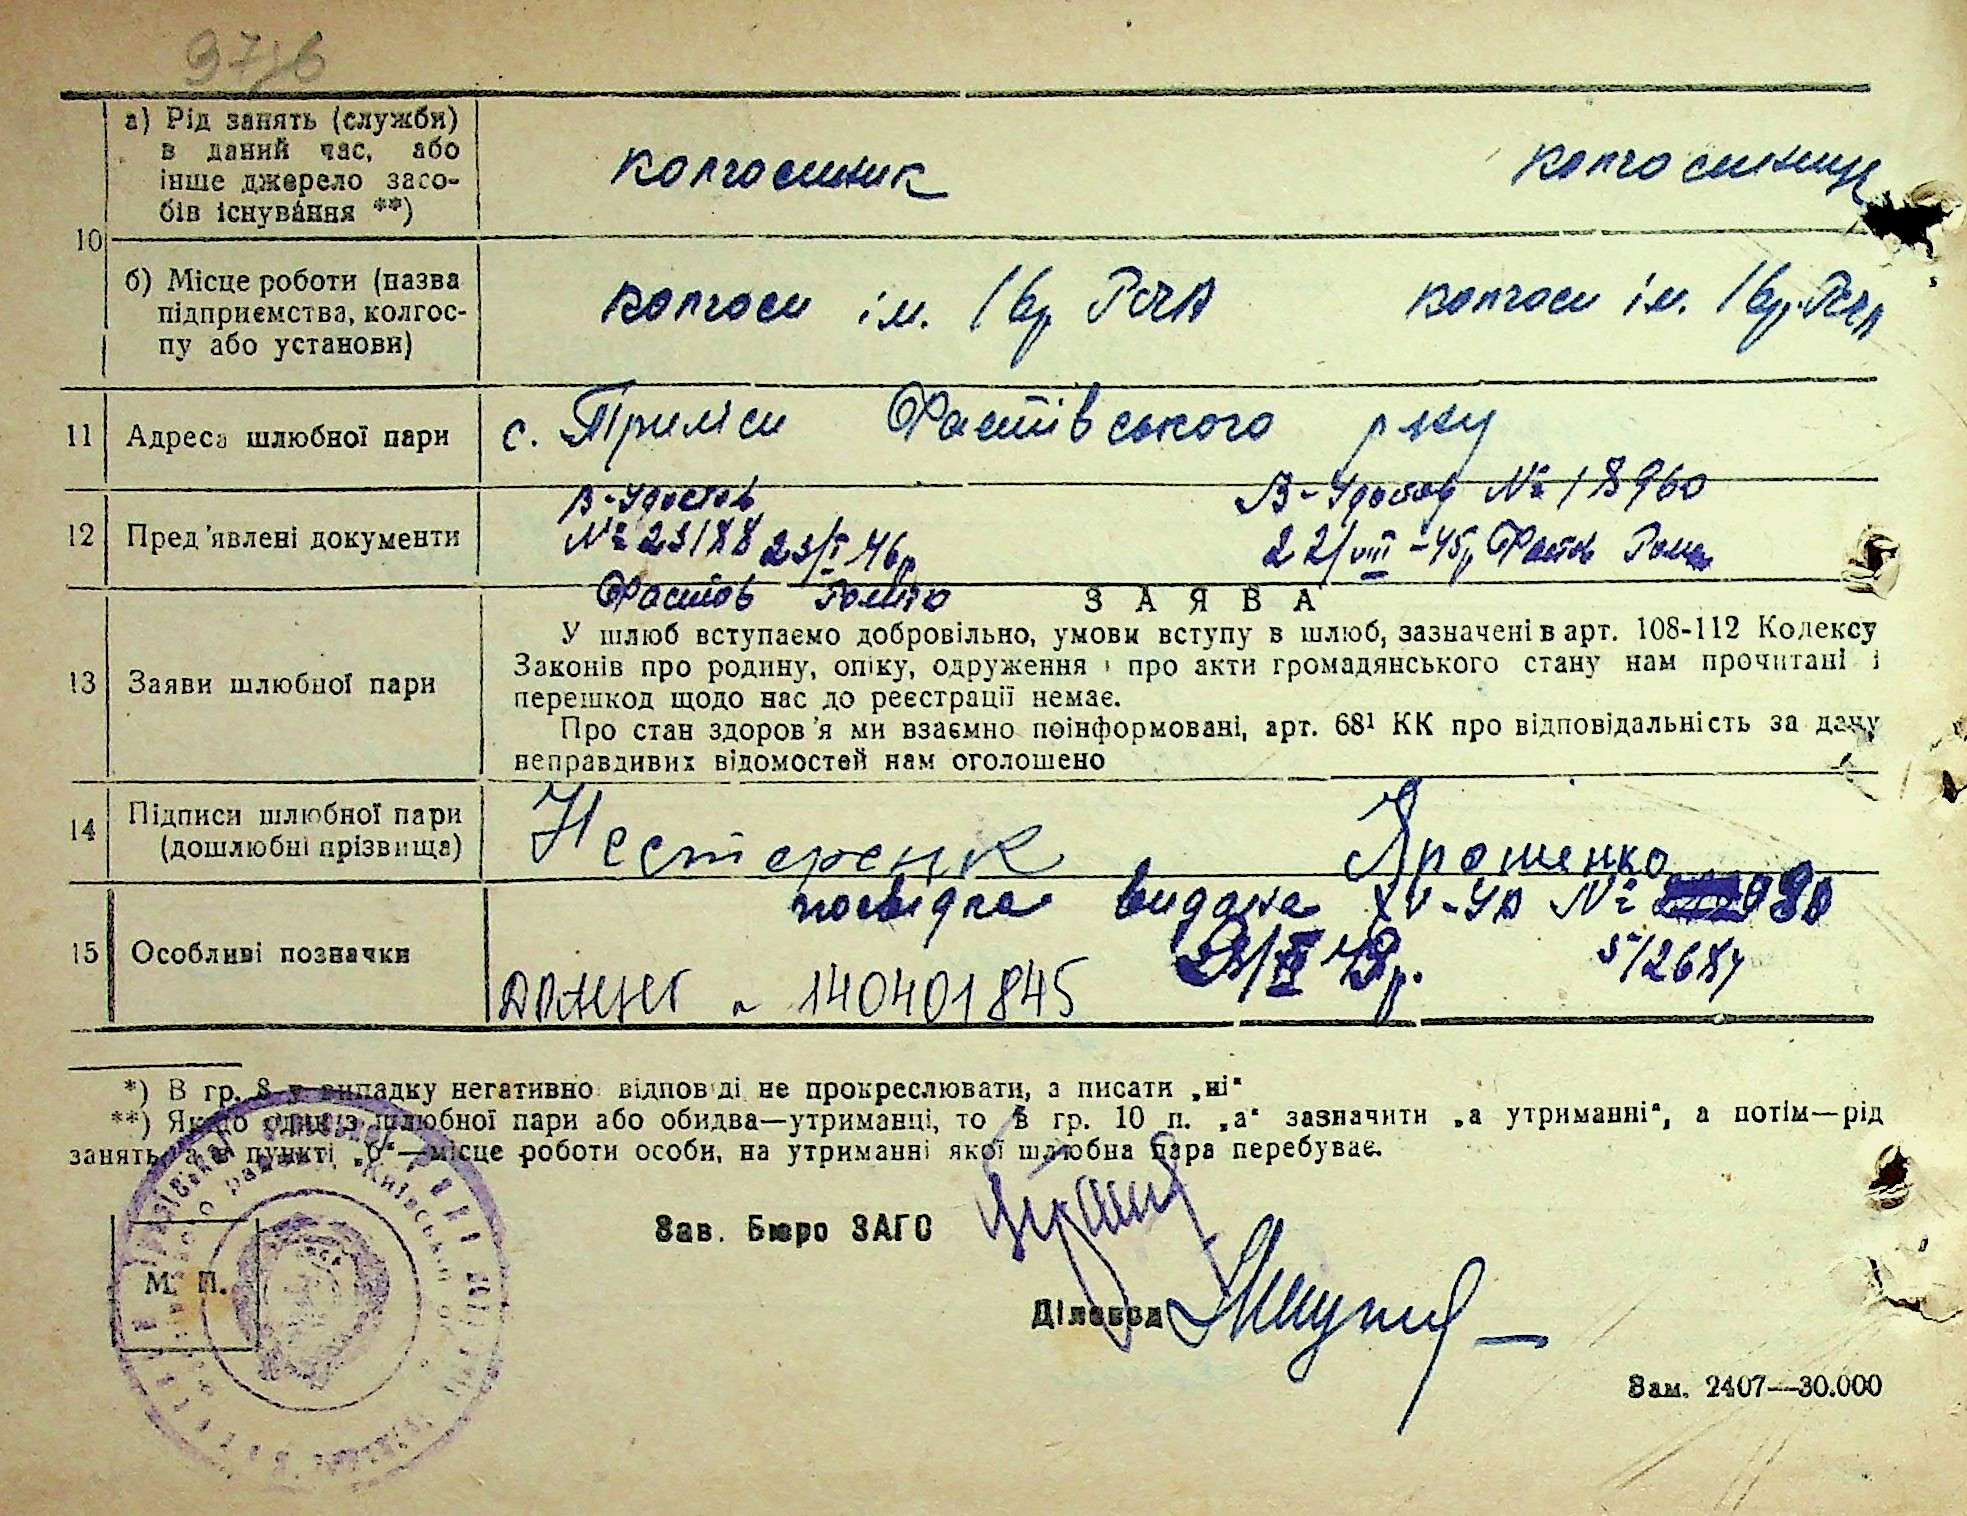 97/6
а) Рід занять (служби)
в даний час, або
інше джерело засо-
бів існування **)
колгоспник
колгоспниця
10
б) Місце роботи (назва
підприємства, колгос-
пу або установи)
колгосп ім.
колгосп ім.
11
Адреса шлюбної пари
с. Приліси Фастівського р-ну
12
Пред'явлені документи
В-Удостов
№ 23188 23/I 46р
Фастов
В-Удостов № 18960
22/VIII-45р Фастов
13
Заяви шлюбної пари
ЗАЯВА
У шлюб вступаємо добровільно, умови вступу в шлюб, зазначені в арт. 108-112 Кодексу
Законів про родину, опіку, одруження і про акти громадянського стану нам прочитані і
перешкод щодо нас до реєстрації немає.
Про стан здоров'я ми взаємно поінформовані, арт. 68¹ КК про відповідальність за дачу
неправдивих відомостей нам оголошено
14
Підписи шлюбної пари
(дошлюбні прізвища)
Нестеренк
Ярошенко
15
Особливі позначки
посвідка видана XV-УЮ №
140401845
*) В гр. 8 у випадку негативно відповіді не прокреслювати, з писати „ні"
**) Якщо один з шлюбної пари або обидва—утриманці, то в гр. 10 п. „а" зазначити „а утриманні", а потім—рід
занять, а в пункті „б"—місце роботи особи, на утриманні якої шлюбна пара перебуває.
Зав. Бюро ЗАГС
М. П.
Діловод
Зам. 2407—30.000